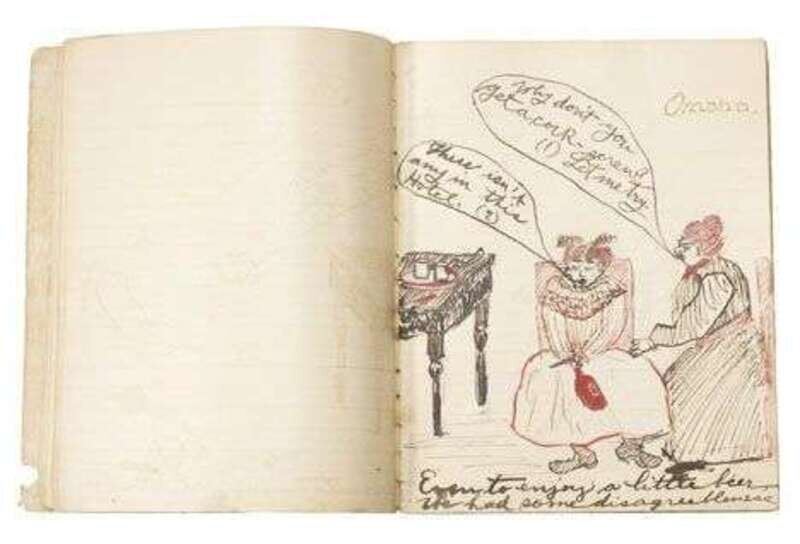 Omaha.
Why don't you
get a cork-screw?
(1) Let me try.
There isn't
any in this
Hotel. (2)
Even to enjoy a little beer
We had some disagreeableness